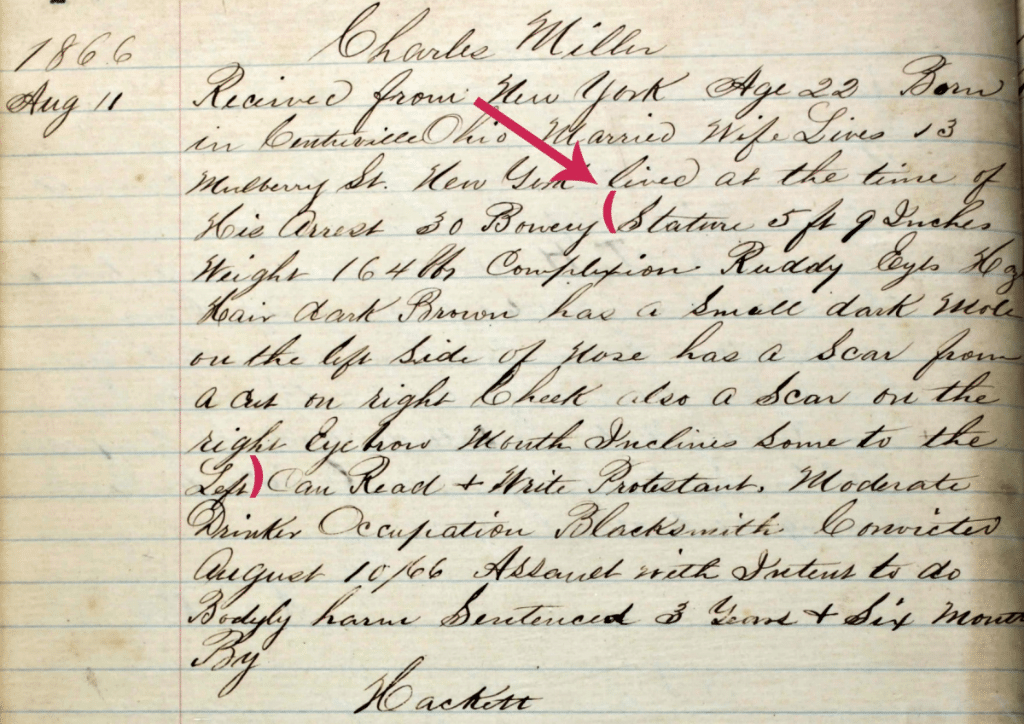 1866
Charles Miller
Aug 11
Received from New York Age 22 Born
in Centerville Ohio Married Wife Lives 13
Mulberry St. New York lived at the time of
His Arrest 30 Bowery (Stature 5 ft 9 Inches
Weight 164 lbs Complexion Ruddy Eyes Haz
Hair dark Brown has a small dark Mole
on the left side of Nose has a Scar from
a Cut on right Cheek also a Scar on the
right Eyebrow Mouth Inclines some to the
Left) Can Read + Write Protestant. Moderate
Drinker Occupation Blacksmith Convicted
August 10/66 Assault with Intent to do
Bodyly harm Sentenced 3 Years + Six Month
By
Hackett